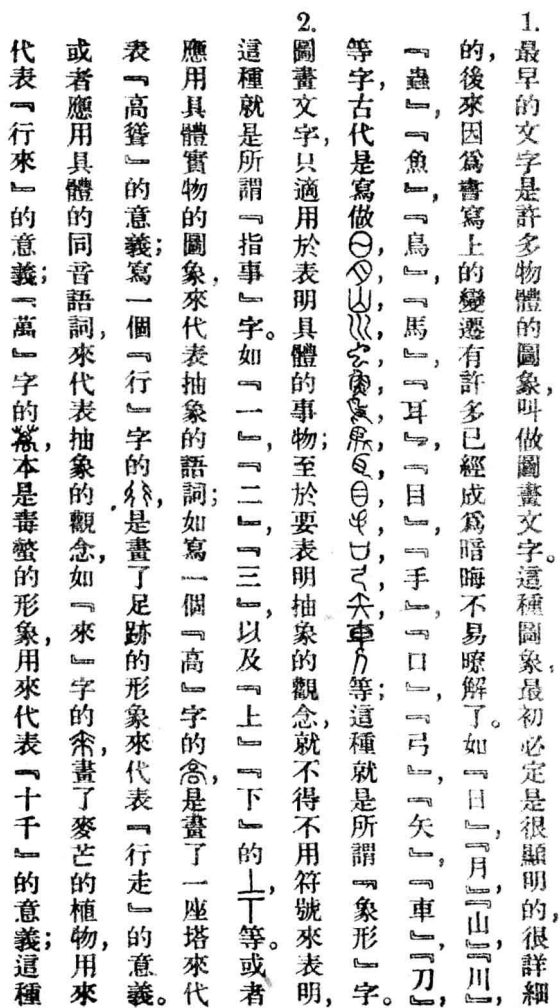 1. 最早的文字是許多物體的圖象,叫做圖畫文字。這種圖象,最初必定是很顯明的,很詳細
的,後來因爲書寫上的變遷有許多已經成爲暗晦不易暸解了。如『日』,『月』『山』『川』,
『蟲』,『魚』,『鳥』,『馬』,『耳』,『目』,『手』,『口』,『弓』,『矢』,『車』,『刀』,
等字,古代是寫做等;這種就是所謂『象形』字。
2. 圖畫文字,只適用於表明具體的事物;至於要表明抽象的觀念,就不得不用符號來表明,
這種就是所謂『指事』字。如『一』,『二』,『三』,以及『上』『下』的丄丅等。或者
應用具體實物的圖象,來代表抽象的語詞;如寫一個『高』字的,是畫了一座塔來代
表『高聳』的意義;寫一個『行』字的,是畫了足跡的形象來代表『行走』的意義。
或者應用具體的同音語詞,來代表抽象的觀念,如『來』字的,畫了麥芒的植物,用來
代表『行來』的意義;『萬』字的,本是毒螫的形象,用來代表『十千』的意義;這種